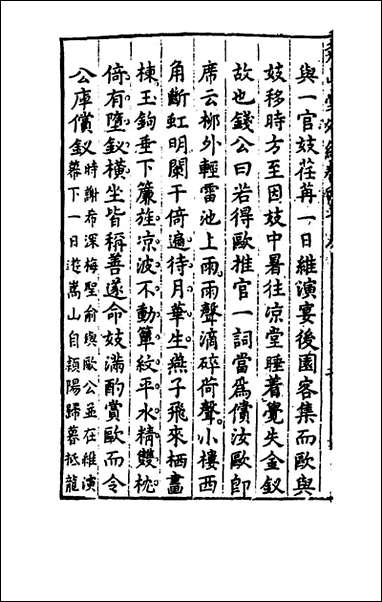 與一官妓荏苒一日維演宴後園客集而歐與
妓移時方至因妓中暑往凉堂睡着覺失金釵
故也錢公曰若得歐推官一詞當為償汝歐即
席云柳外輕雷池上雨雨聲滴碎荷聲小樓西
角斷虹明闌干倚遍待月華生燕子飛來栖畫
棟玉鉤垂下簾旌凉波不動簟紋平水精雙枕
倚有墮釵橫坐皆稱善遂命妓滿酌賞歐而令
公庫償釵
時謝希深梅聖俞與歐公並在維演
幕下一日遊嵩山自頴陽歸暮抵龍